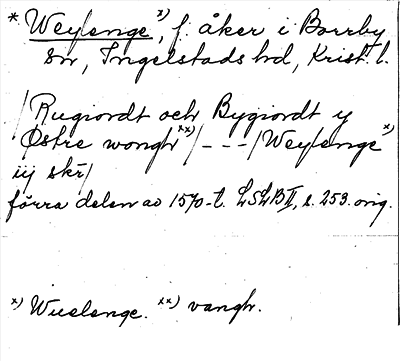 * Weylenge, x) f. åker i Borrby
sn, Ingelstads hd, Krist. l.
/Rugiordt och Bygiordt y
Østre wongh xx)/ - - - /Weylenge x)
iij skr/
förra delen av 1570-t. LSLB II, s. 253. orig.
x) Wuelenge. xx) vangh.